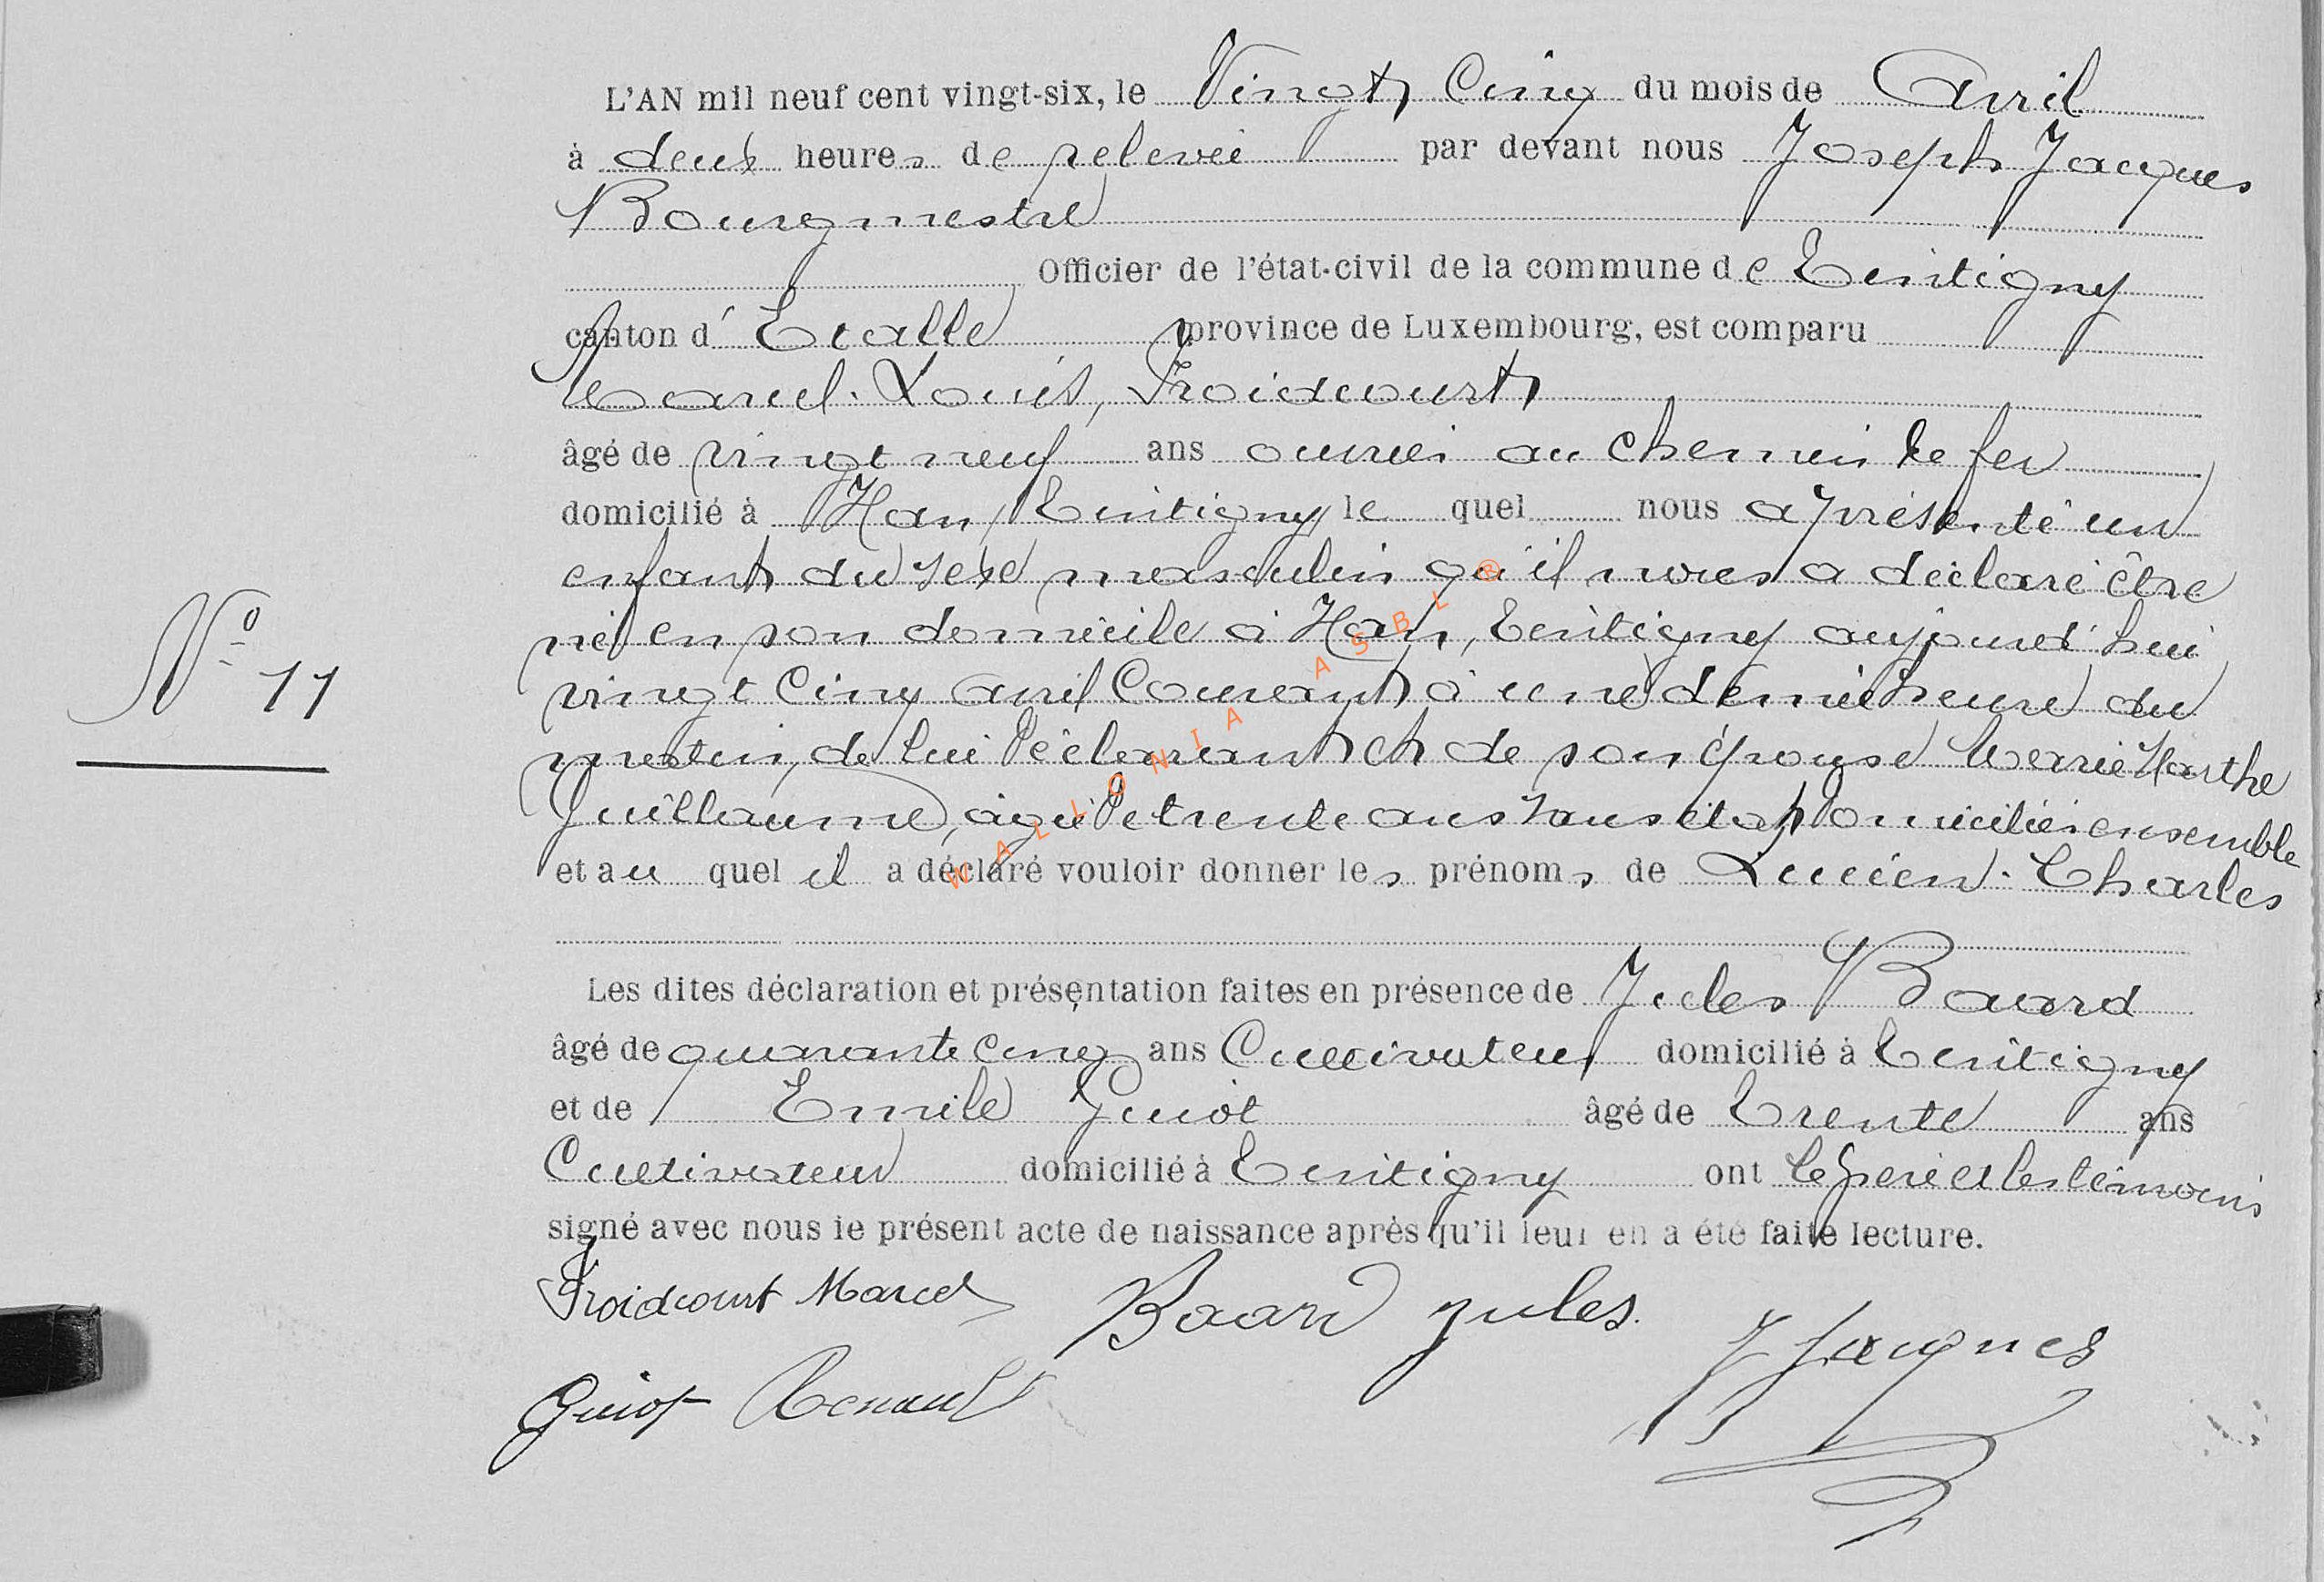 L'AN mil neuf cent vingt-six, le Vingt Cinq du mois de Avril
à deux heures de relevée par devant nous Joseph Jacques
Bourgmestre
Officier de l'état-civil de la commune de Tintigny
canton d'Etalle province de Luxembourg, est comparu
Marcel. Louis, Froidcourt
âgé de vingt neuf ans ouvrier au chemin de fer
domicilié à Han, Tintigny le quel nous a présenté un
enfant du sexe masculin qu'il nous a déclaré être
né en son domicile à Han, Tintigny aujourd'hui
N° 11
vingt Cinq avril Courant à une demie heure du
matin, de lui Déclarant et de son épouse Marie Marthe
Guillaume, agée de trente ans sans état Domiciliés ensemble
et au quel il a déclaré vouloir donner les prénoms de Lucien. Charles
Les dites déclaration et présentation faites en présence de Jules Baard
âgé de quarante cinq ans Cultivateur domicilié à Tintigny
et de Emile Guiot âgé de Trente ans
Cultivateur domicilié à Tintigny ont le père et les témoins
signé avec nous le présent acte de naissance après qu'il leur en a été faite lecture.
Froidcourt Marcel Baard Jules. J Jacques
Guiot Renault
WALLONIA ASBL ®